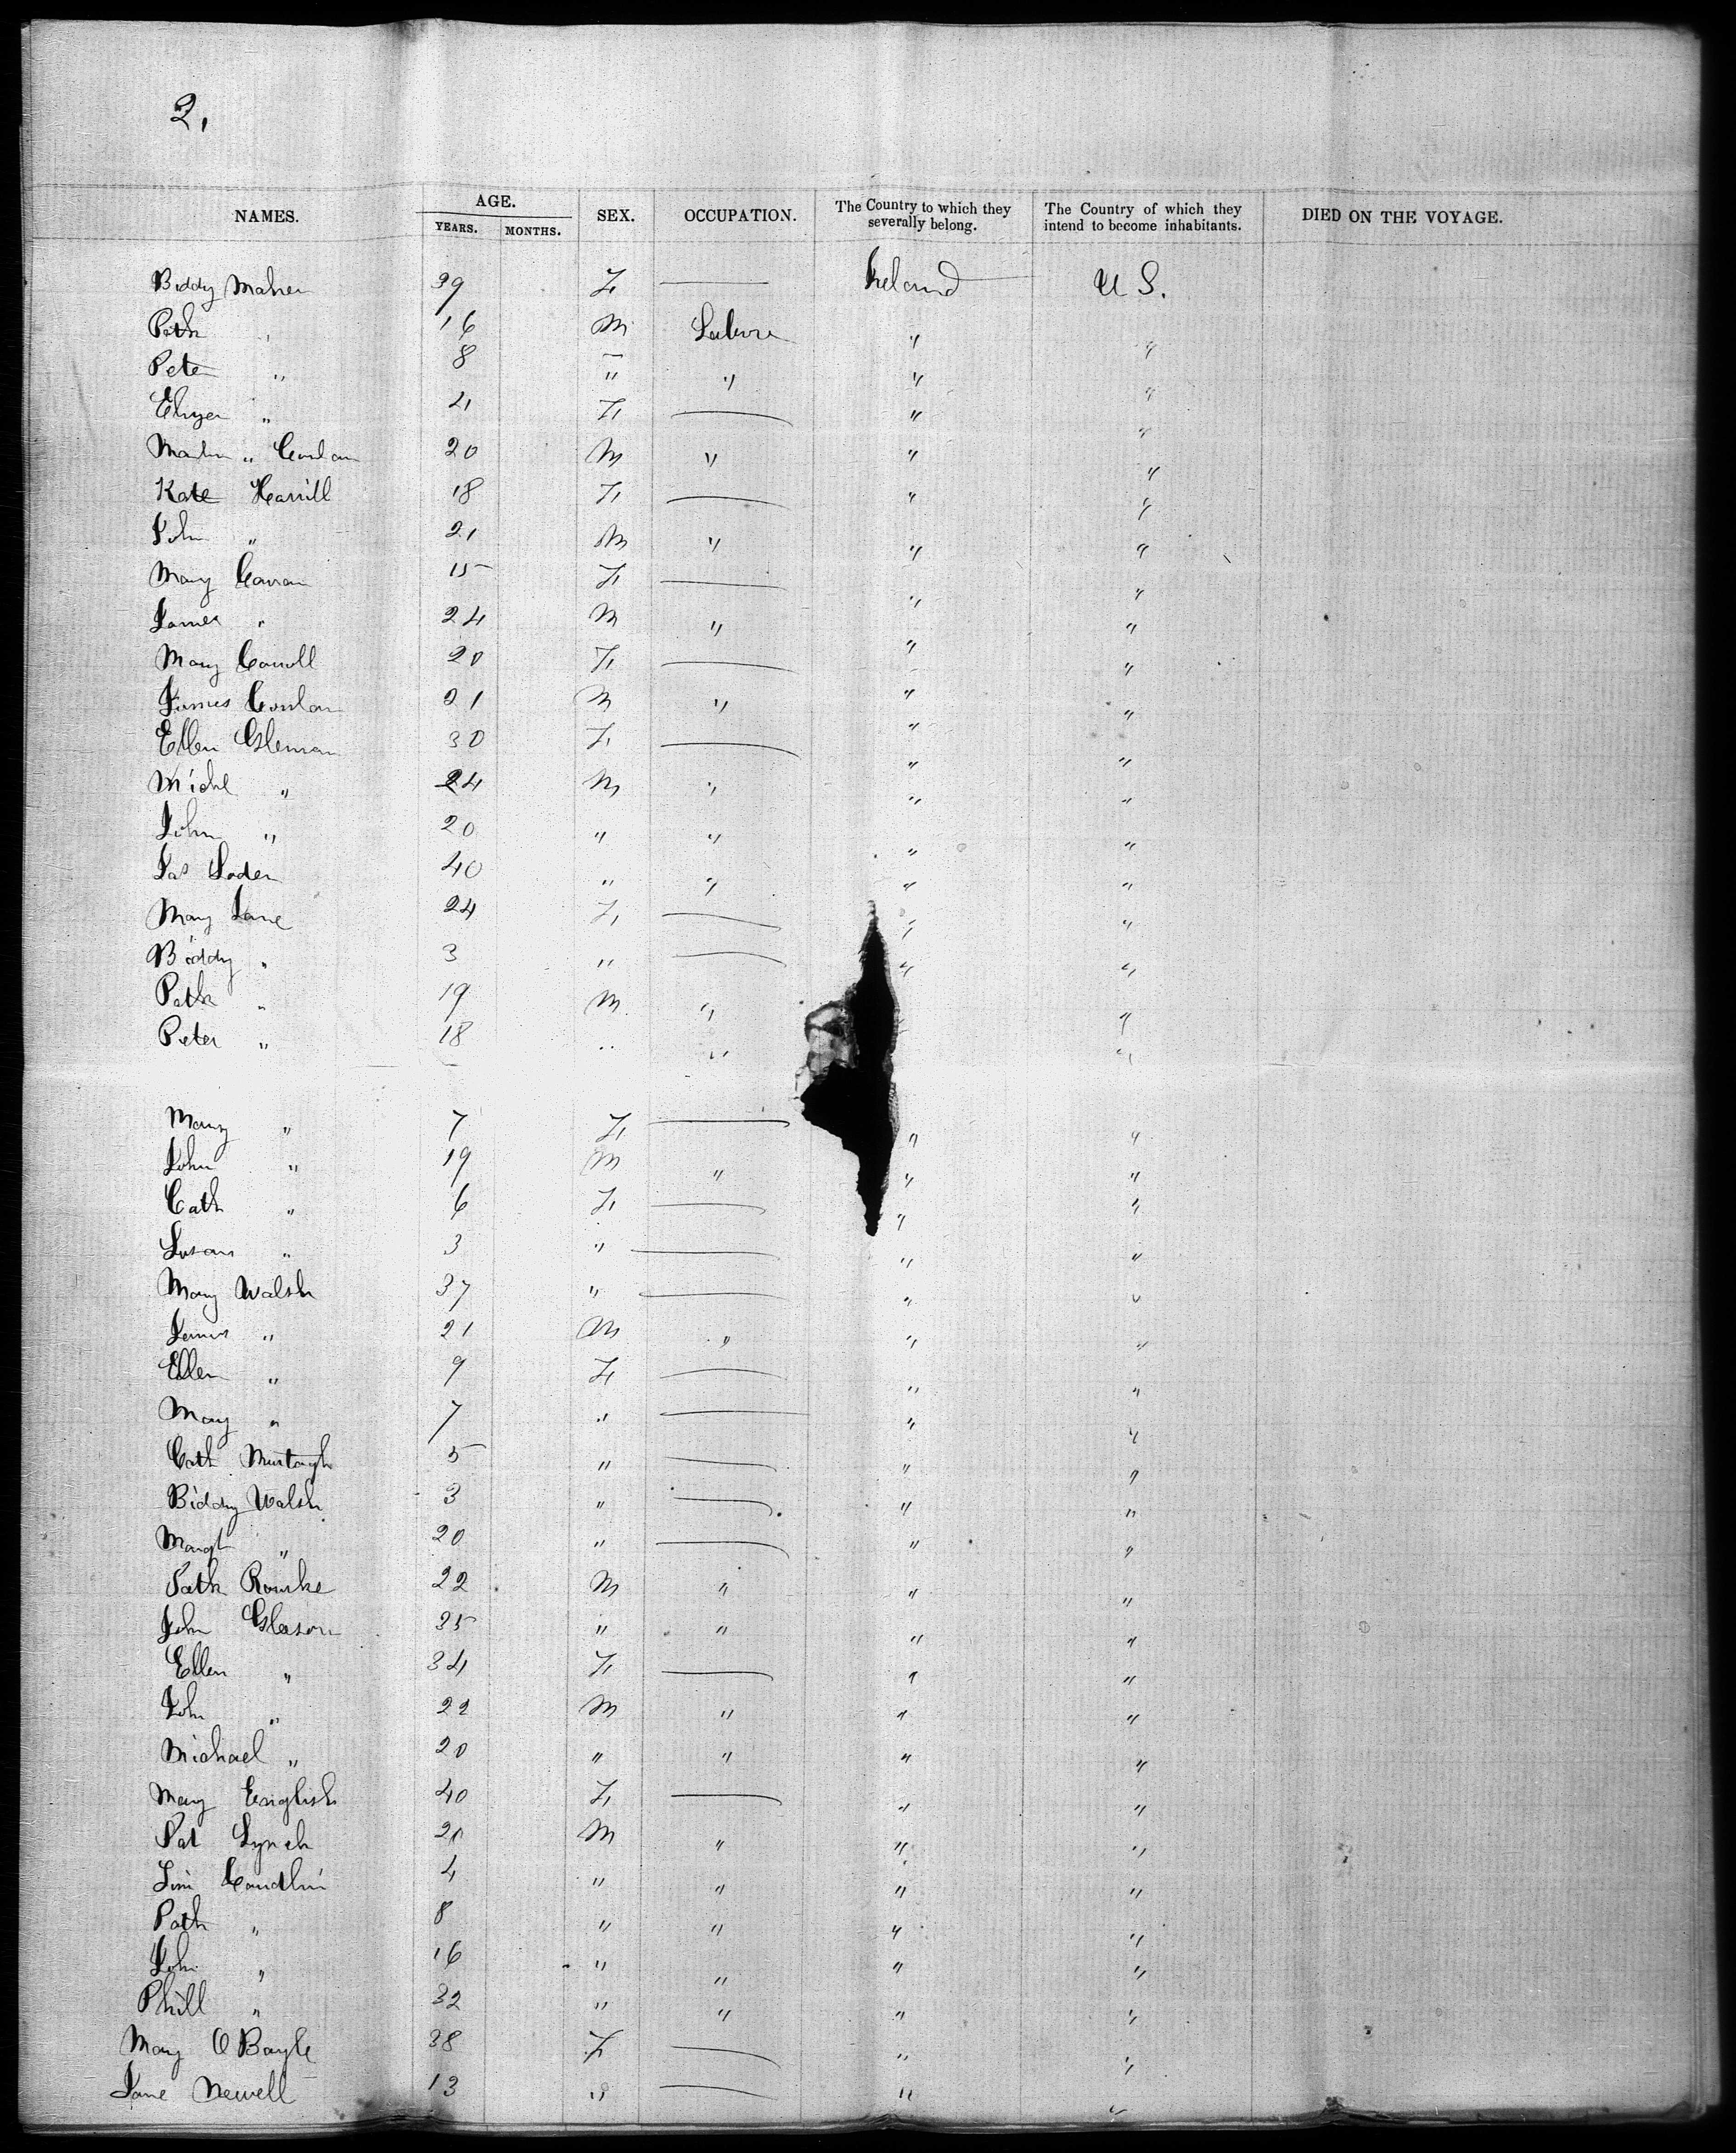 2,
NAMES. AGE. YEARS. MONTHS. SEX. OCCUPATION. The Country to which they severally belong. The Country of which they intend to become inhabitants. DIED ON THE VOYAGE.
Biddy Maher 39 F Ireland U S.
Patk " 16 M Labore " "
Peter " 8 " " " "
" 4 F " "
Martin " Conlan 20 M " " "
Kate Harrill 18 F " "
John " 21 M " " "
Mary 15 F " "
James " 24 M " " "
Mary Carroll 20 F " "
James Conlan 21 M " " "
Ellen 30 F " "
Michl " 24 M " " "
John " 20 " " " "
Jas 40 " " " "
Mary Lane 24 F " "
Biddy " 3 " " "
Patk " 19 M " "
Peter " 18 " " "
Mary " 7 F " "
John " 19 M " " "
Cath " 6 F " "
Susan " 3 " " "
Mary Walsh 37 " " "
James " 21 M " " "
Ellen " 9 F " "
Mary " 7 " " "
Cath Murtagh 5 " " "
Biddy Walsh 3 " " "
Margt " 20 " " "
Patk Rourke 22 M " " "
John Gleason 35 " " " "
Ellen " 34 F " "
John " 22 M " " "
Michael " 20 " " " "
Mary English 40 F " "
Pat Lynch 20 M " " "
4 " " " "
Patk " 8 " " " "
John " 16 " " " "
Phill " 32 " " " "
Mary O Boyle 38 F " "
Jane Newell 13 " " "